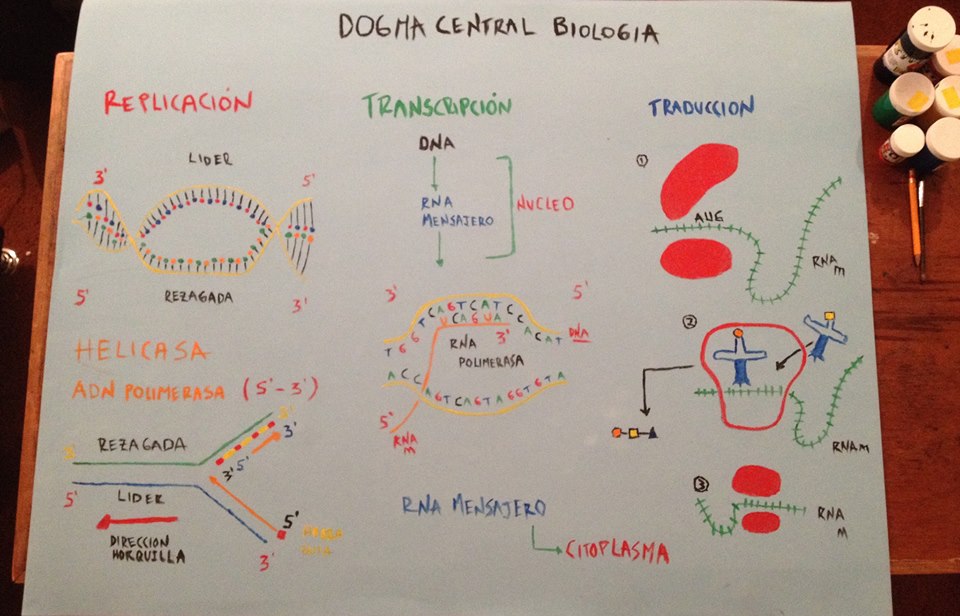 DOGMA CENTRAL BIOLOGIA
REPLICACIÓN
LIDER
3' 5'
REZAGADA
5' 3'
HELICASA
ADN POLIMERASA (5'-3')
REZAGADA
3'
3' 5'
5'
LIDER
DIRECCION
HORQUILLA
5'
3'
TRANSCRIPCIÓN
DNA
RNA
MENSAJERO
NUCLEO
3' 5'
TGGTCAGTCATCCACAT
UCAGUA
DNA
RNA
POLIMERASA
3'
ACCAGTCAGTAGGTGTA
5'
RNA
m
RNA MENSAJERO
CITOPLASMA
TRADUCCION
1
AUG
RNA
m
2
RNAm
3
RNA
m